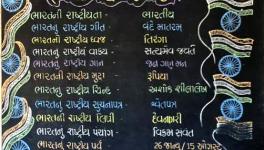 ભારતની રાષ્ટ્રીયતા - ભારતીય
ભારતનુ રાષ્ટ્રીય ગીત - વંદે માતરમ
ભારતનો રાષ્ટ્રીય ધ્વજ - તિરંગા
ભારતનુ રાષ્ટ્રીય વાક્ય - સત્યમેવ જયતે
ભારતનુ રાષ્ટ્રીય ગાન - જન ગણ મન
ભારતની રાષ્ટ્રીય મુદ્રા - રૂપિયા
ભારતનુ રાષ્ટ્રીય ચિન્હ - અશોક શીલાલેખ
ભારતનુ રાષ્ટ્રીય સુચનાપત્ર - શ્વેતપત્ર
ભારતની રાષ્ટ્રીય લિપી - દેવનાગરી
ભારતનુ રાષ્ટ્રીય પંચાગ - વિક્રમ સંવત
ભારતનુ રાષ્ટ્રીય પર્વ - 26 જાન્યુ/ 15 ઓગસ્ટ